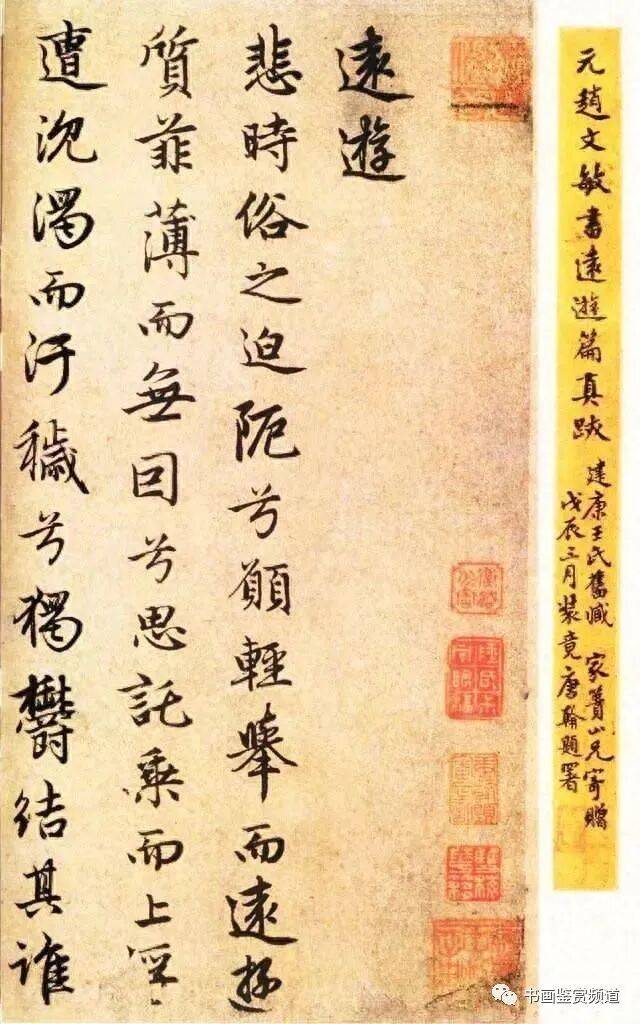 元趙文敏書遠遊篇真跡
建康王氏舊臧 家篔山兄寄贈
戊辰三月裝竟唐翰題署
遠遊
悲時俗之迫阨兮願輕舉而遠遊
質菲薄而無因兮思託乘而上浮
遭沈濁而汙穢兮獨鬱結其誰
书画鉴赏频道